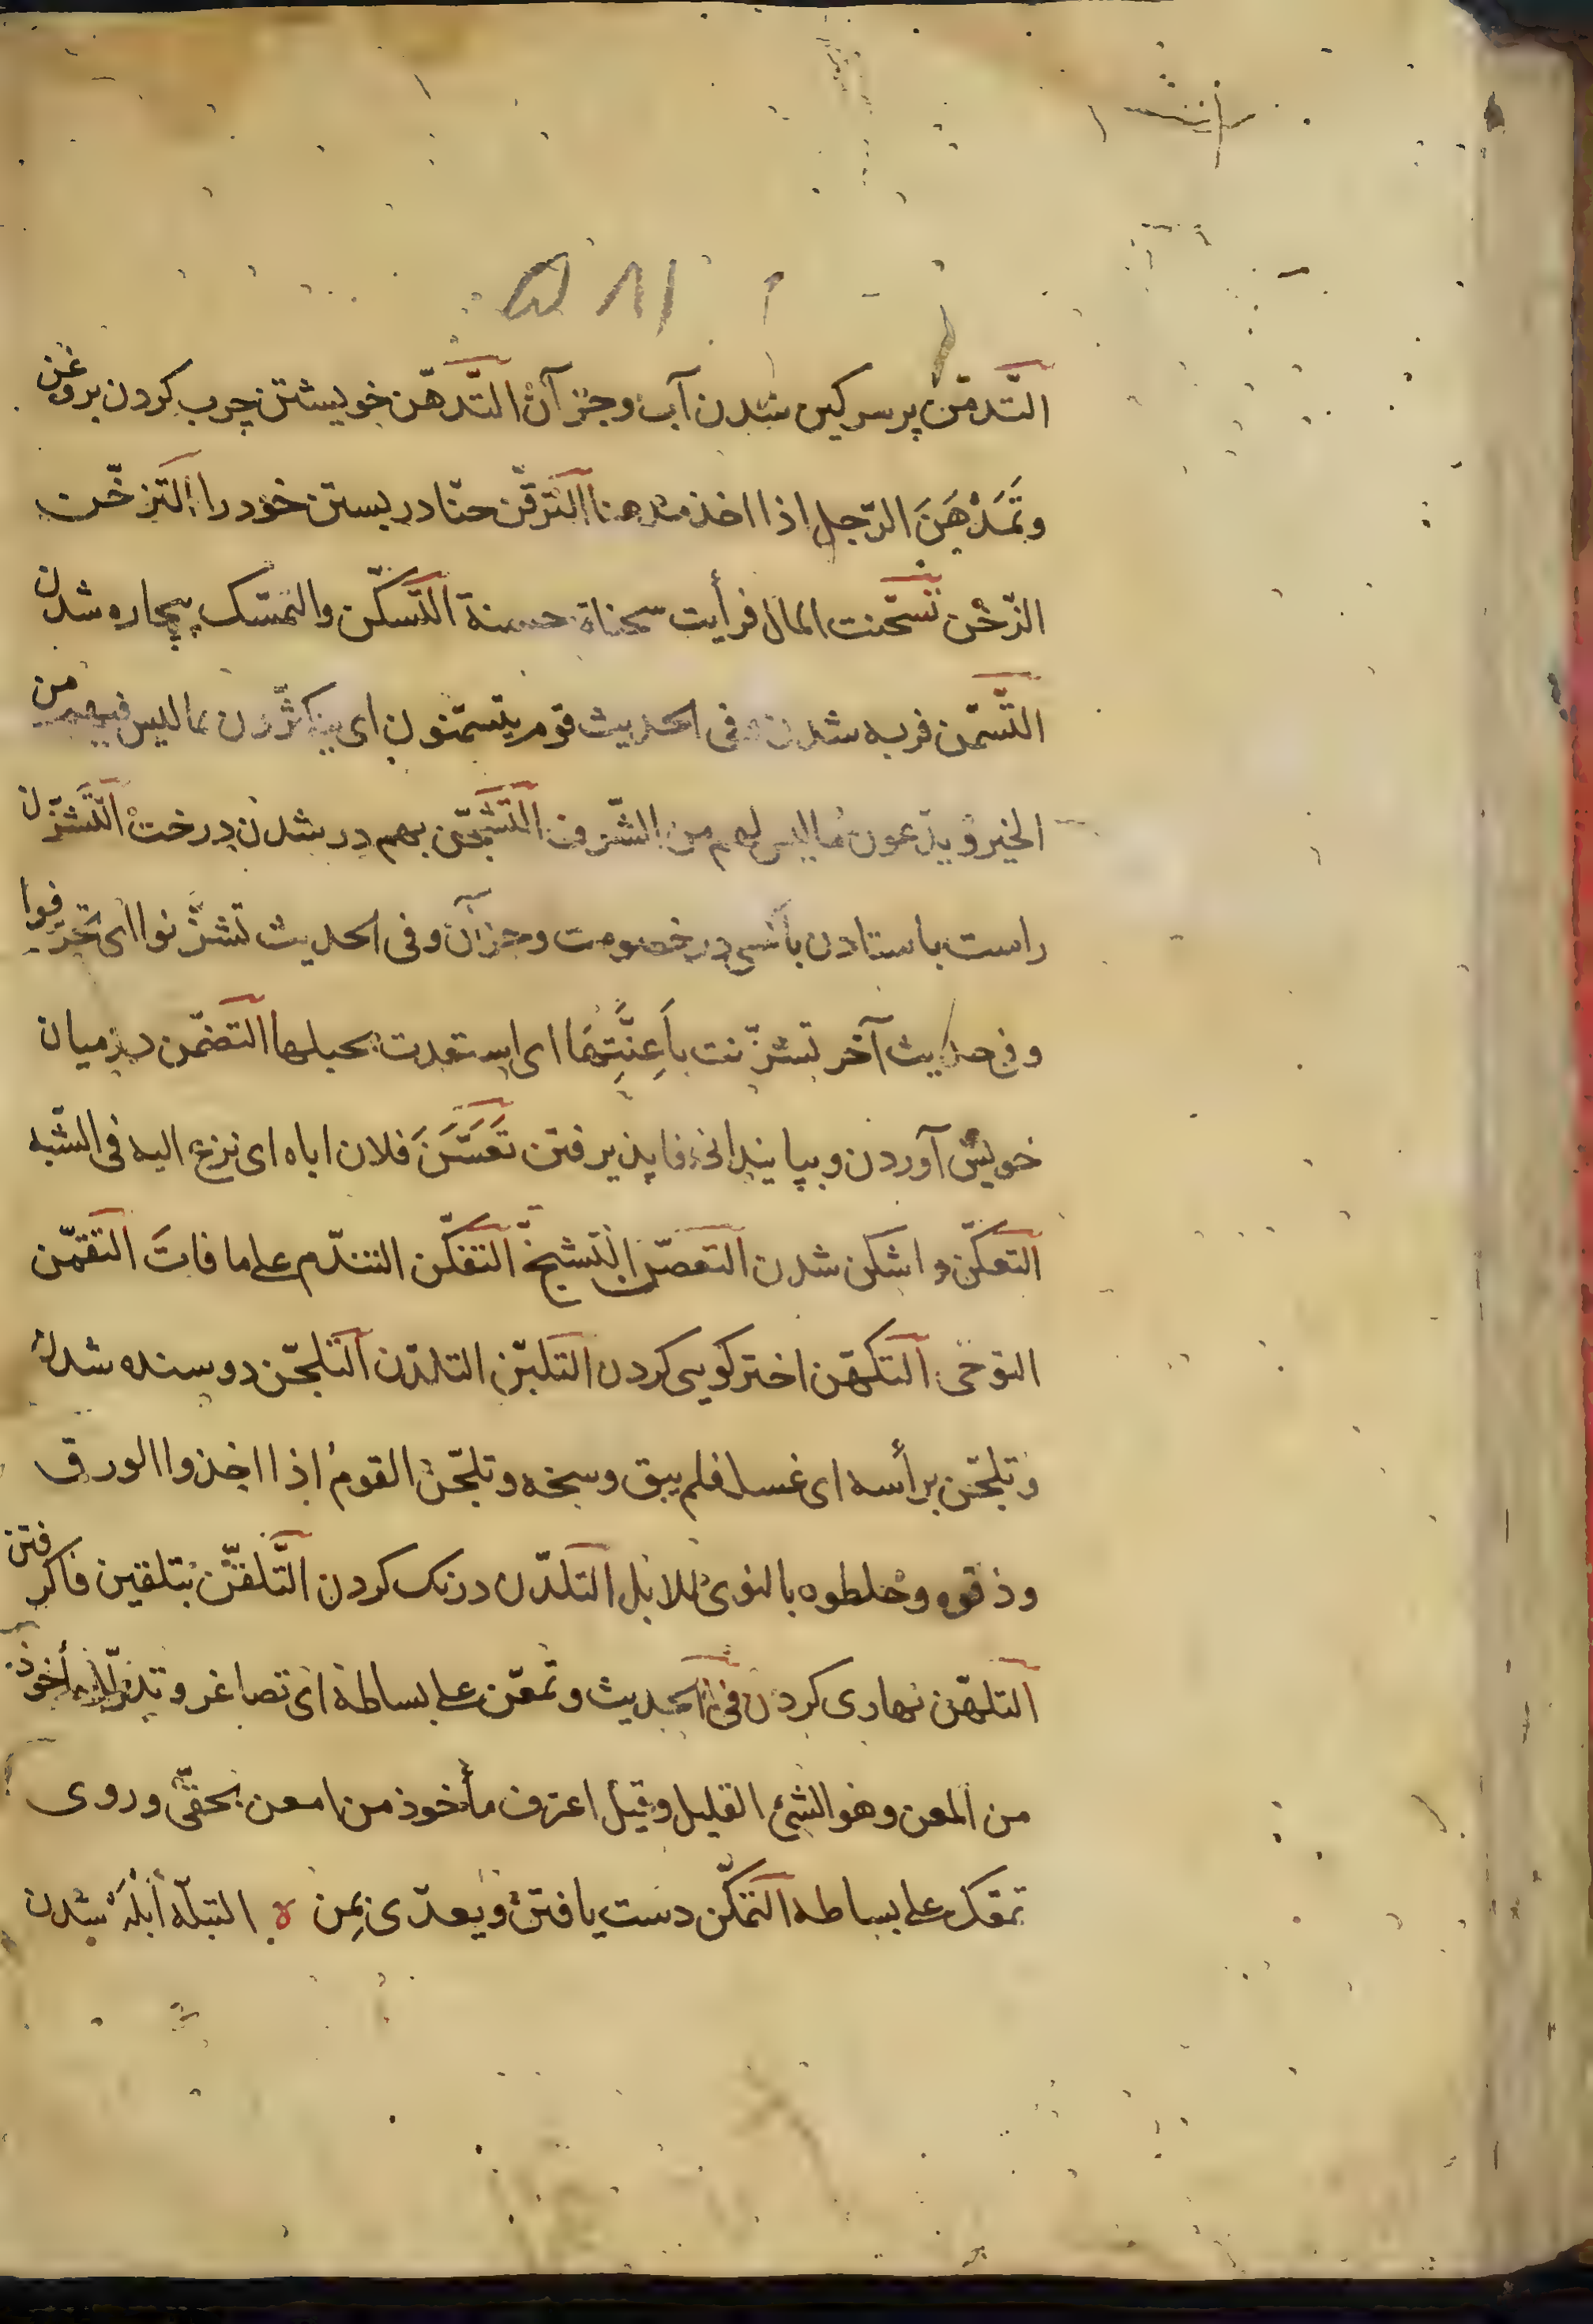 التَّدمّن پر سرکین شدن آب وجز آن التَّدهّن خویشتن چرب کردن بروغن
وتَمَدْهَنَ الرّجل اذا اخذ مدهنا الترقّن حنّا در بستن خود را التزخّن
الزّخْن تسَخّنت المال فرأیت سحناة حسنة التّسکّن والتمسک بیچاره شدن
التّسمّن فربه شدن وفی الحدیث قوم یتسمّنون ای یتکثّرون بما لیس فیهم من
الخیر ویدّعون ما لیس لهم من الشّرف التّشجّن بهم در شدن درخت التّشزّن
راست باستادن با کسی در خصومت وجز آن وفی الحدیث تشزّنوا ای تحرّفوا
وفی حدیث آخر تشزّنت بأَعِنَّتِهَا ای استعدت بحبلها التضمّن در میان
خویش آوردن وبپایندانی فا پذیرفتن تَعَسَّنَ فلان اباه ای نزع الیه فی الشبه
التعکّن وا شکن شدن التغصّن التّشنّج التفکّن التندّم علی ما فاتَ التقمّن
التوخی التکهّن اخترکویی کردن التلبّن التلدّن التلجّن دوسنده شدن
وتلجّن برأسه ای غسل فلم یبق وسخه وتلجّن القومُ اذا اخذوا الورق
ودقوه وخلطوه بالنوی للابل التلدّن درنک کردن التَّلقّن بتلقین فا کرفتن
التلهّن نهاری کردن فی الحدیث وتمعّن علی بساطه ای تصاغر وتذلّل مأخوذ
من المعن وهو الشئ القلیل وقیل اعترف مأخوذ من امعن بحقّی وروی
تمعّک علی بساطه التمکّن دست یافتن ویعدّی بِمِن ه التبلّه أبْلَه شدن